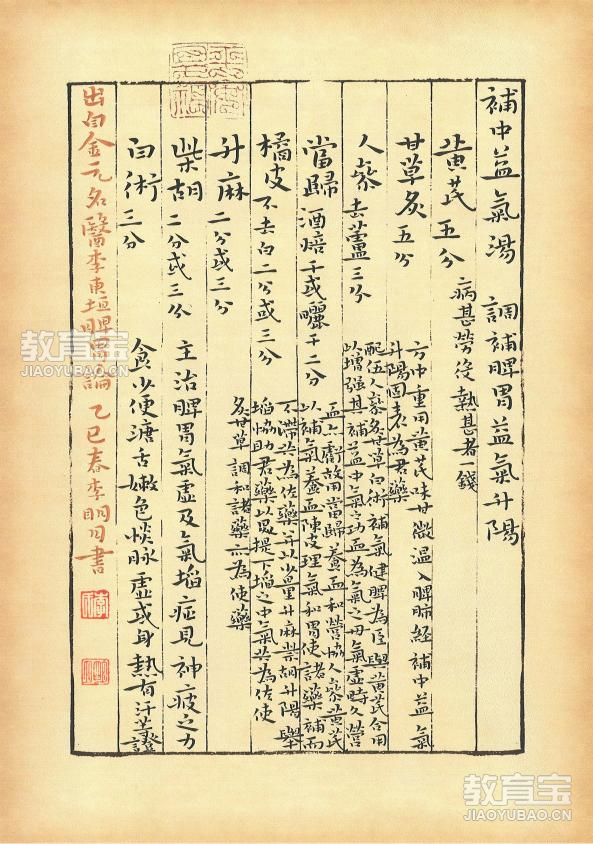 補中益氣湯 調補脾胃益氣升陽
黃芪五分 病甚勞役熱甚者一錢
甘草炙五分
方中重用黃芪味甘微溫入脾肺經補中益氣
升陽固表為君藥
人參去蘆三分
配伍人參炙甘草白術補氣健脾為臣與黃芪合用
以增強其補益中氣之功血為氣之母氣虛時久營
當歸酒焙干或曬干二分
血亦虧故用當歸養血和營協人參黃芪
以補氣養血陳皮理氣和胃使諸藥補而
橘皮不去白二分或三分
不滯共為佐藥并以少量升麻柴胡升陽舉
陷協助君藥以提下陷之中氣共為佐使
升麻二分或三分
炙甘草調和諸藥亦為使藥
柴胡二分或三分 主治脾胃氣虛及氣陷症見神疲乏力
白術三分 食少便溏舌嫩色淡脈虛或身熱有汗等證
出自金元名醫李東垣脾胃論 乙巳春李明書
教育宝
JIAOYUBAO.CN
教育宝
JIAOYUBAO.CN
教育宝
JIAOYUBAO.CN